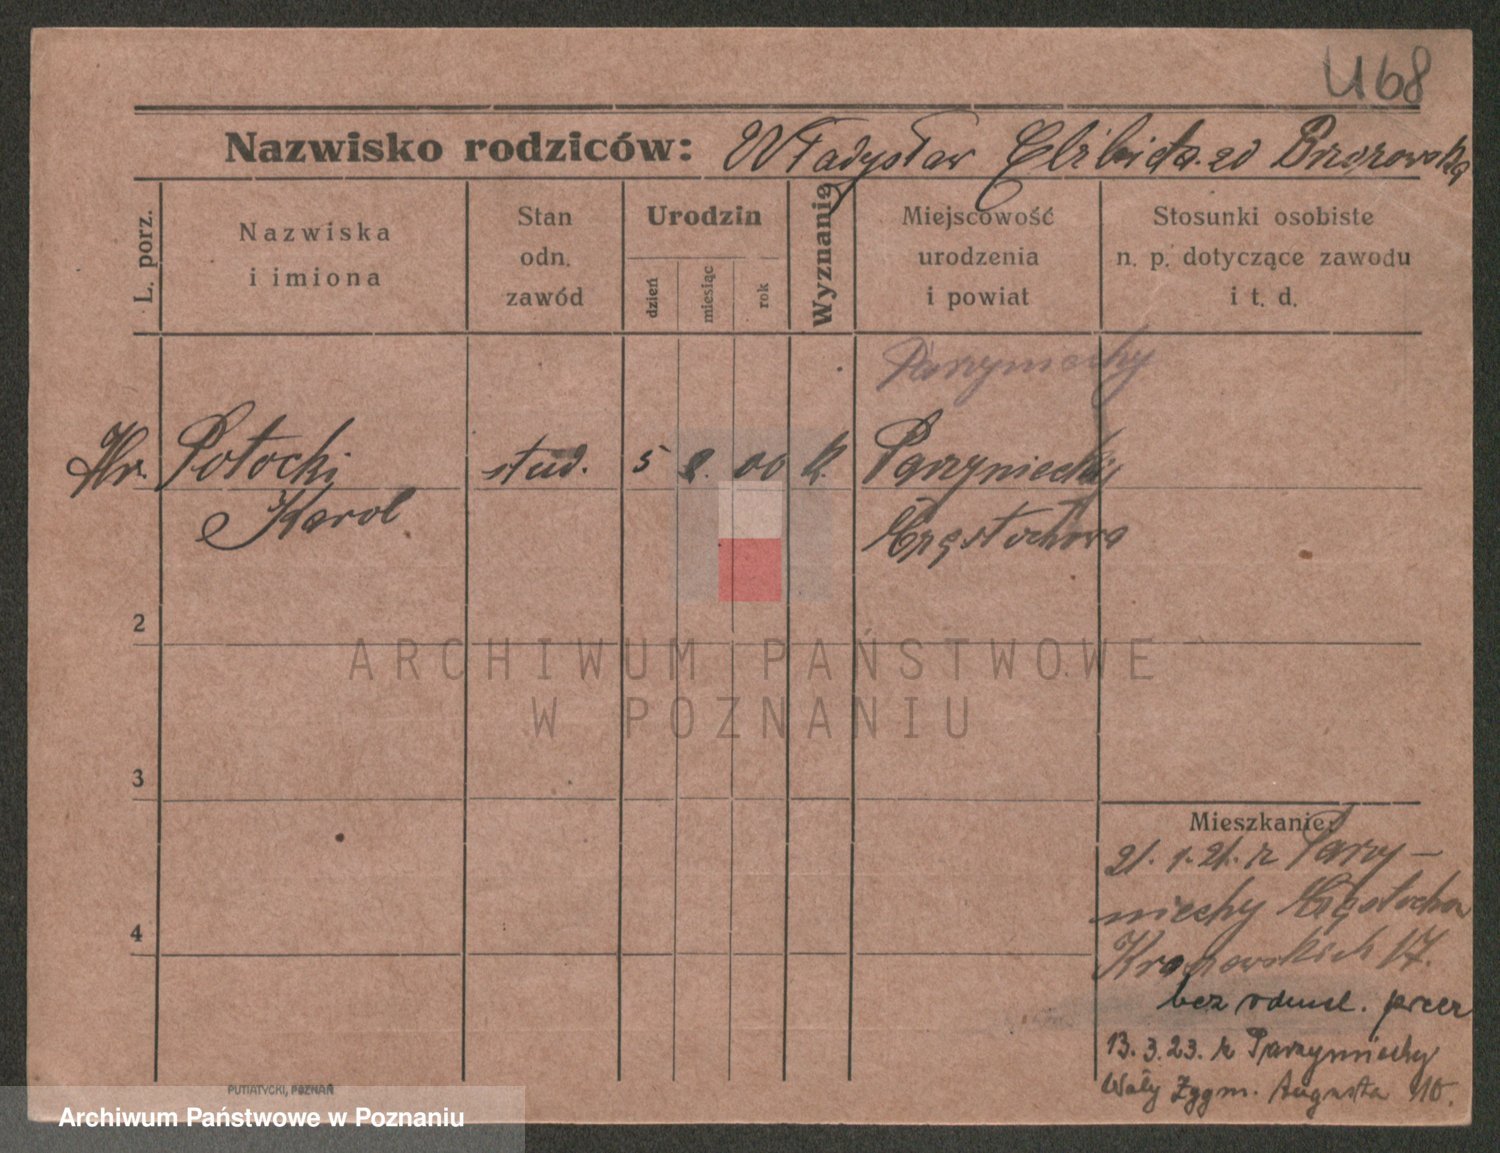 4168
Nazwisko rodziców: Władysław Elżbieta zd Brzozowska
L. porz.
Nazwiska
i imiona
Stan
odn.
zawód
Urodzin
dzień
miesiąc
rok
Wyznanie
Miejscowość
urodzenia
i powiat
Stosunki osobiste
n. p. dotyczące zawodu
i t. d.
Parzymiechy
Hr. Potocki
Karol
stud.
5
00
k.
Częstochowa
2
ARCHIWUM PAŃSTWOWE
W POZNANIU
3
4
Mieszkanie:
21. 1. 21. z Parzy-
miechy Częstochowa
17.
bez
13. 3. 23. z Parzymiechy
Wały Zygm. Augusta 10.
PUTIATYCKI, POZNAŃ
Archiwum Państwowe w Poznaniu